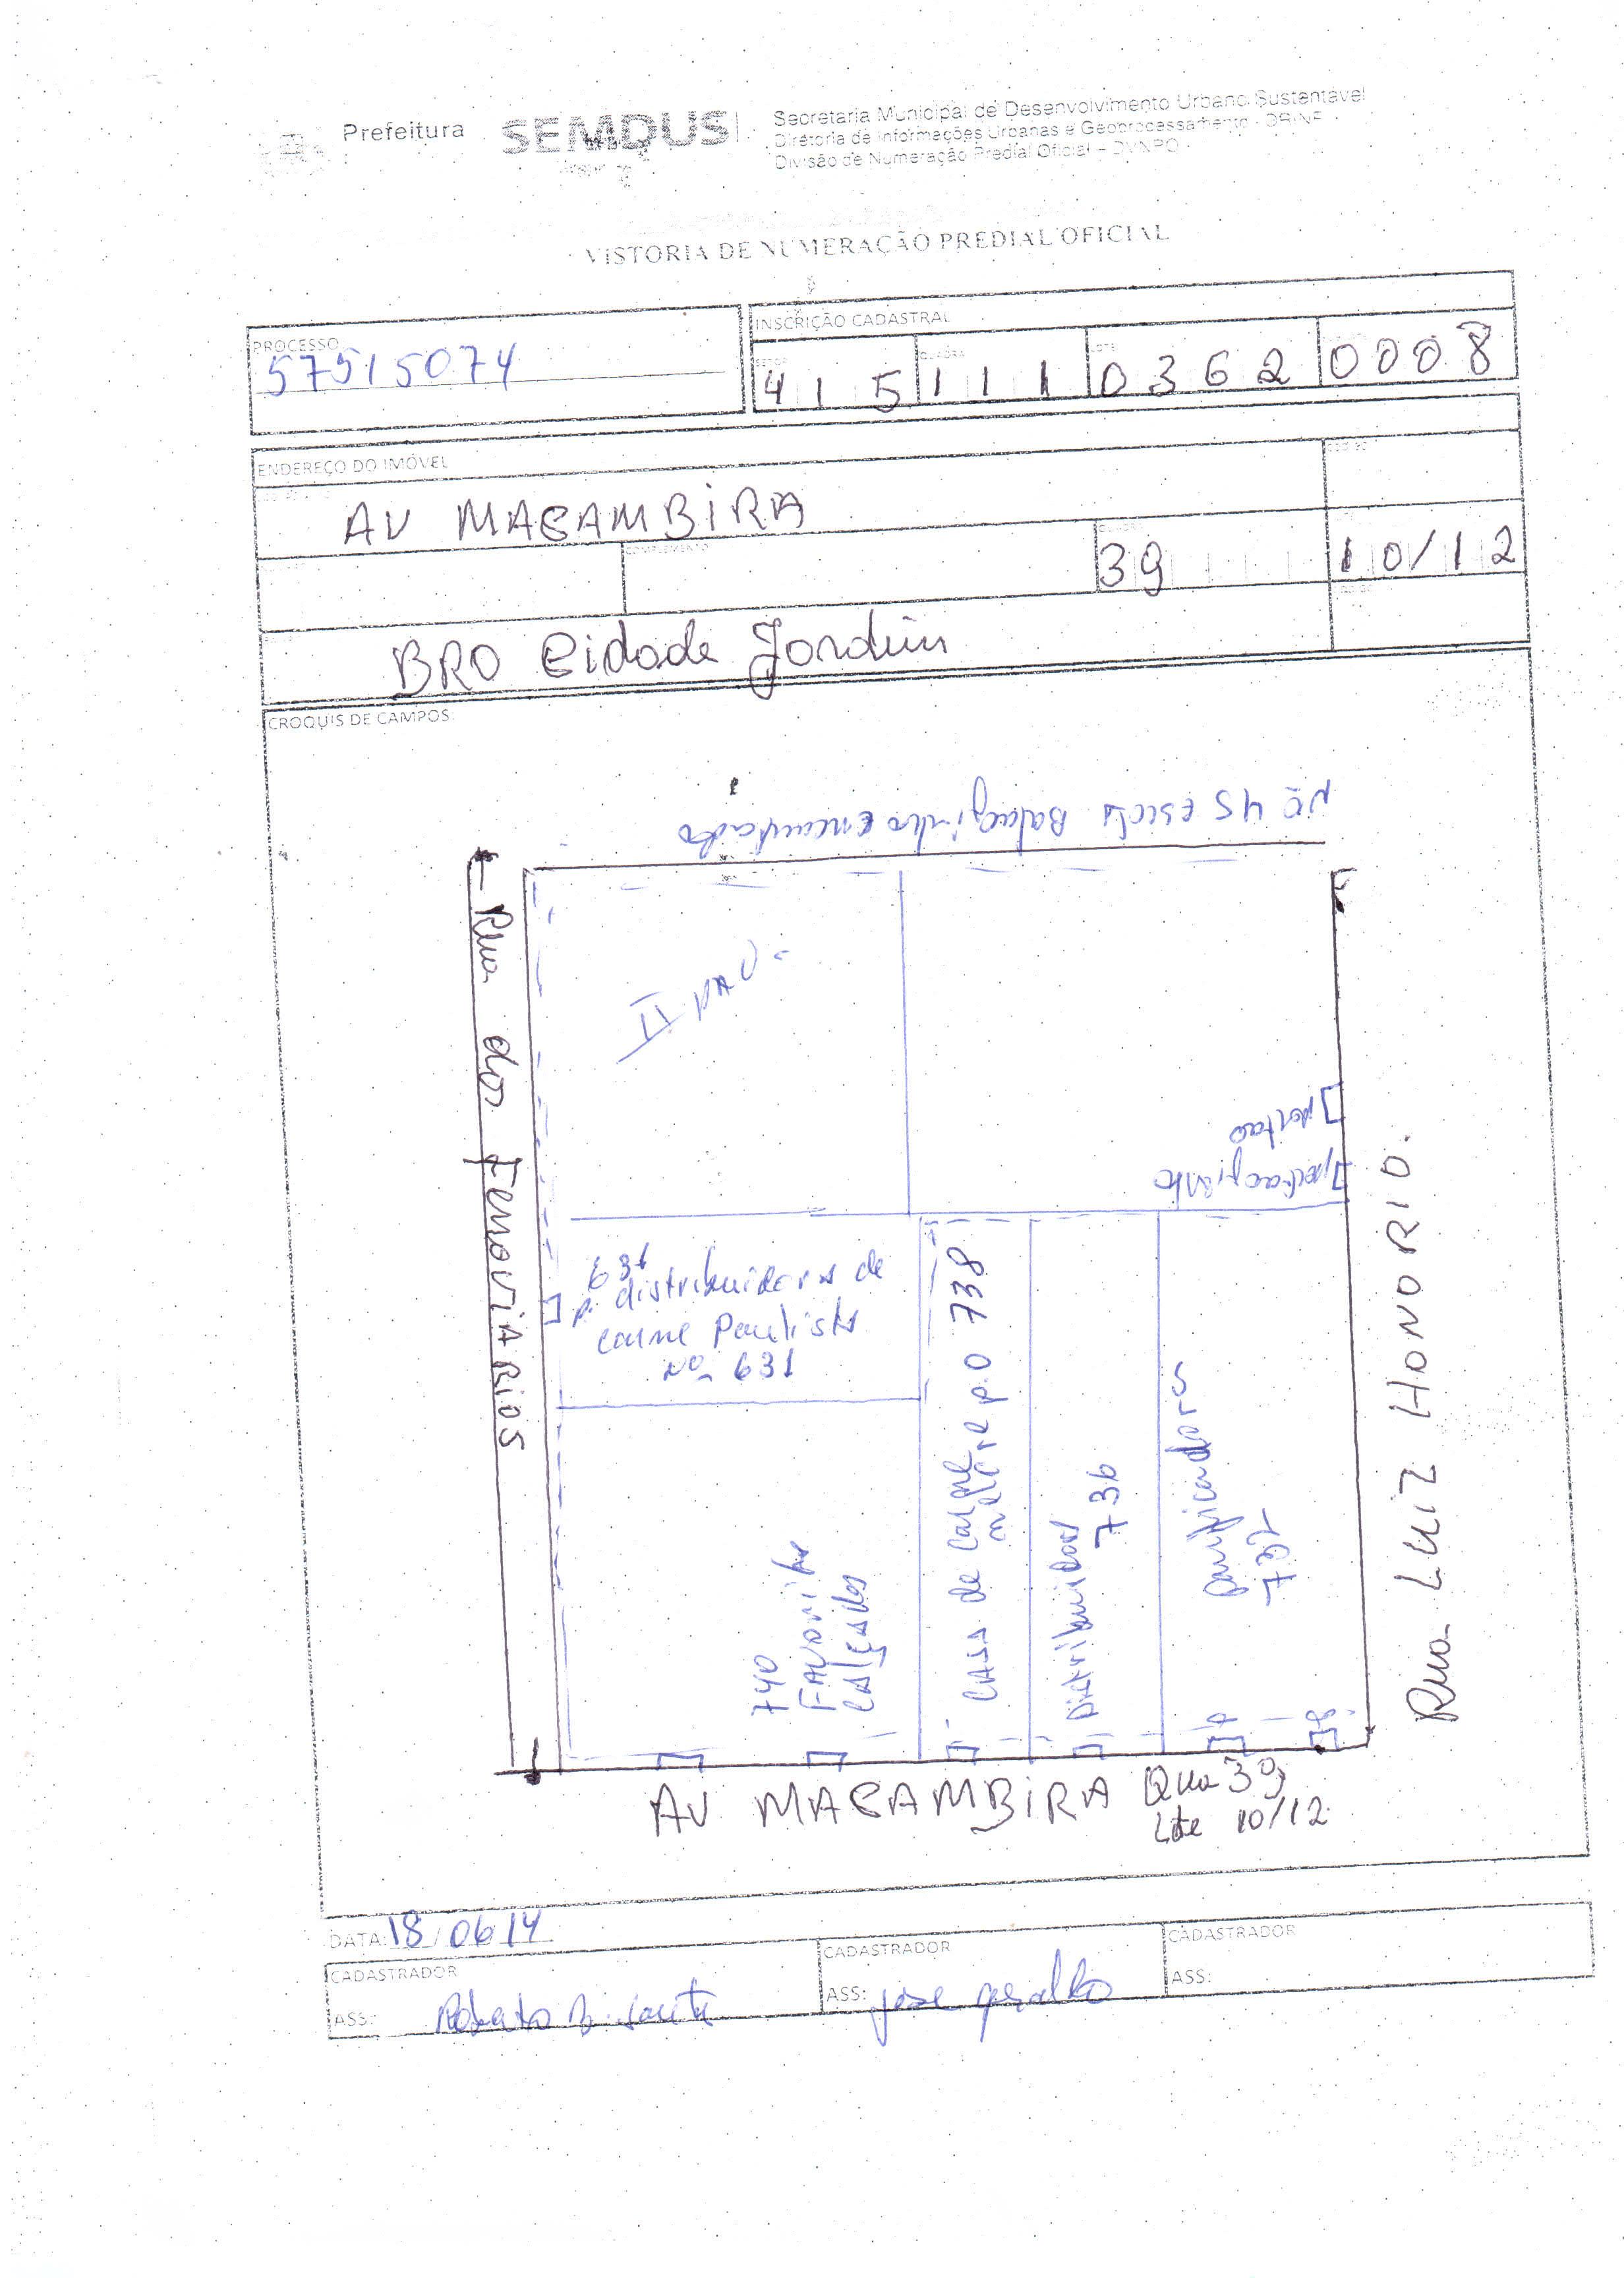 Prefeitura
SEMDUS
Secretaria Municipal de Desenvolvimento Urbano Sustentável
Diretoria de Informações Urbanas e Geoprocessamento - DRINF
Divisão de Numeração Predial Oficial – DVNPO
VISTORIA DE NUMERAÇÃO PREDIAL OFICIAL
PROCESSO
57515074
INSCRIÇÃO CADASTRAL
SETOR
QUADRA
LOTE
41 5 111 0362 0008
ENDEREÇO DO IMÓVEL
AV MACAMBIRA
COMPLEMENTO
QUADRA
39
10/12
BRO Cidade Jardim
CROQUIS DE CAMPOS:
Nº 45 esicta
Rua dos FerroviARiOS
II PAV-
portao
631
p. distribuidora de
carne Paulista
Nº 631
740
FAVORita
calçados
CASA de carne
p.0 738
Distribuidora
736
panificadora
732
Rua LUiZ HONORIO.
AV MACAMBiRA Qua 39
Lote 10/12
DATA: 18/06/14
CADASTRADOR
ASS:
CADASTRADOR
ASS: jose geraldo
CADASTRADOR
ASS: